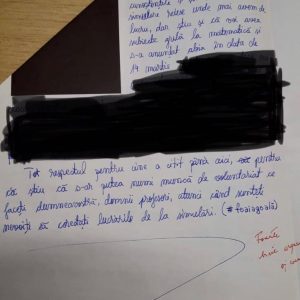 cunoștințele și
simulare reiese unde mai avem de
lucru, dar știu și că voi avea
subiecte grilă la matematică și
s-a anunțat abia în data de
14 martie
Tot respectul pentru cine a citit până aici, pentru
că știu că s-ar putea numi muncă de voluntariat ce
faceți dumneavoastră, domnii profesori, atunci când sunteți
nevoiți să corectați lucrările de la simulări. (#foaiagoală)
Foarte